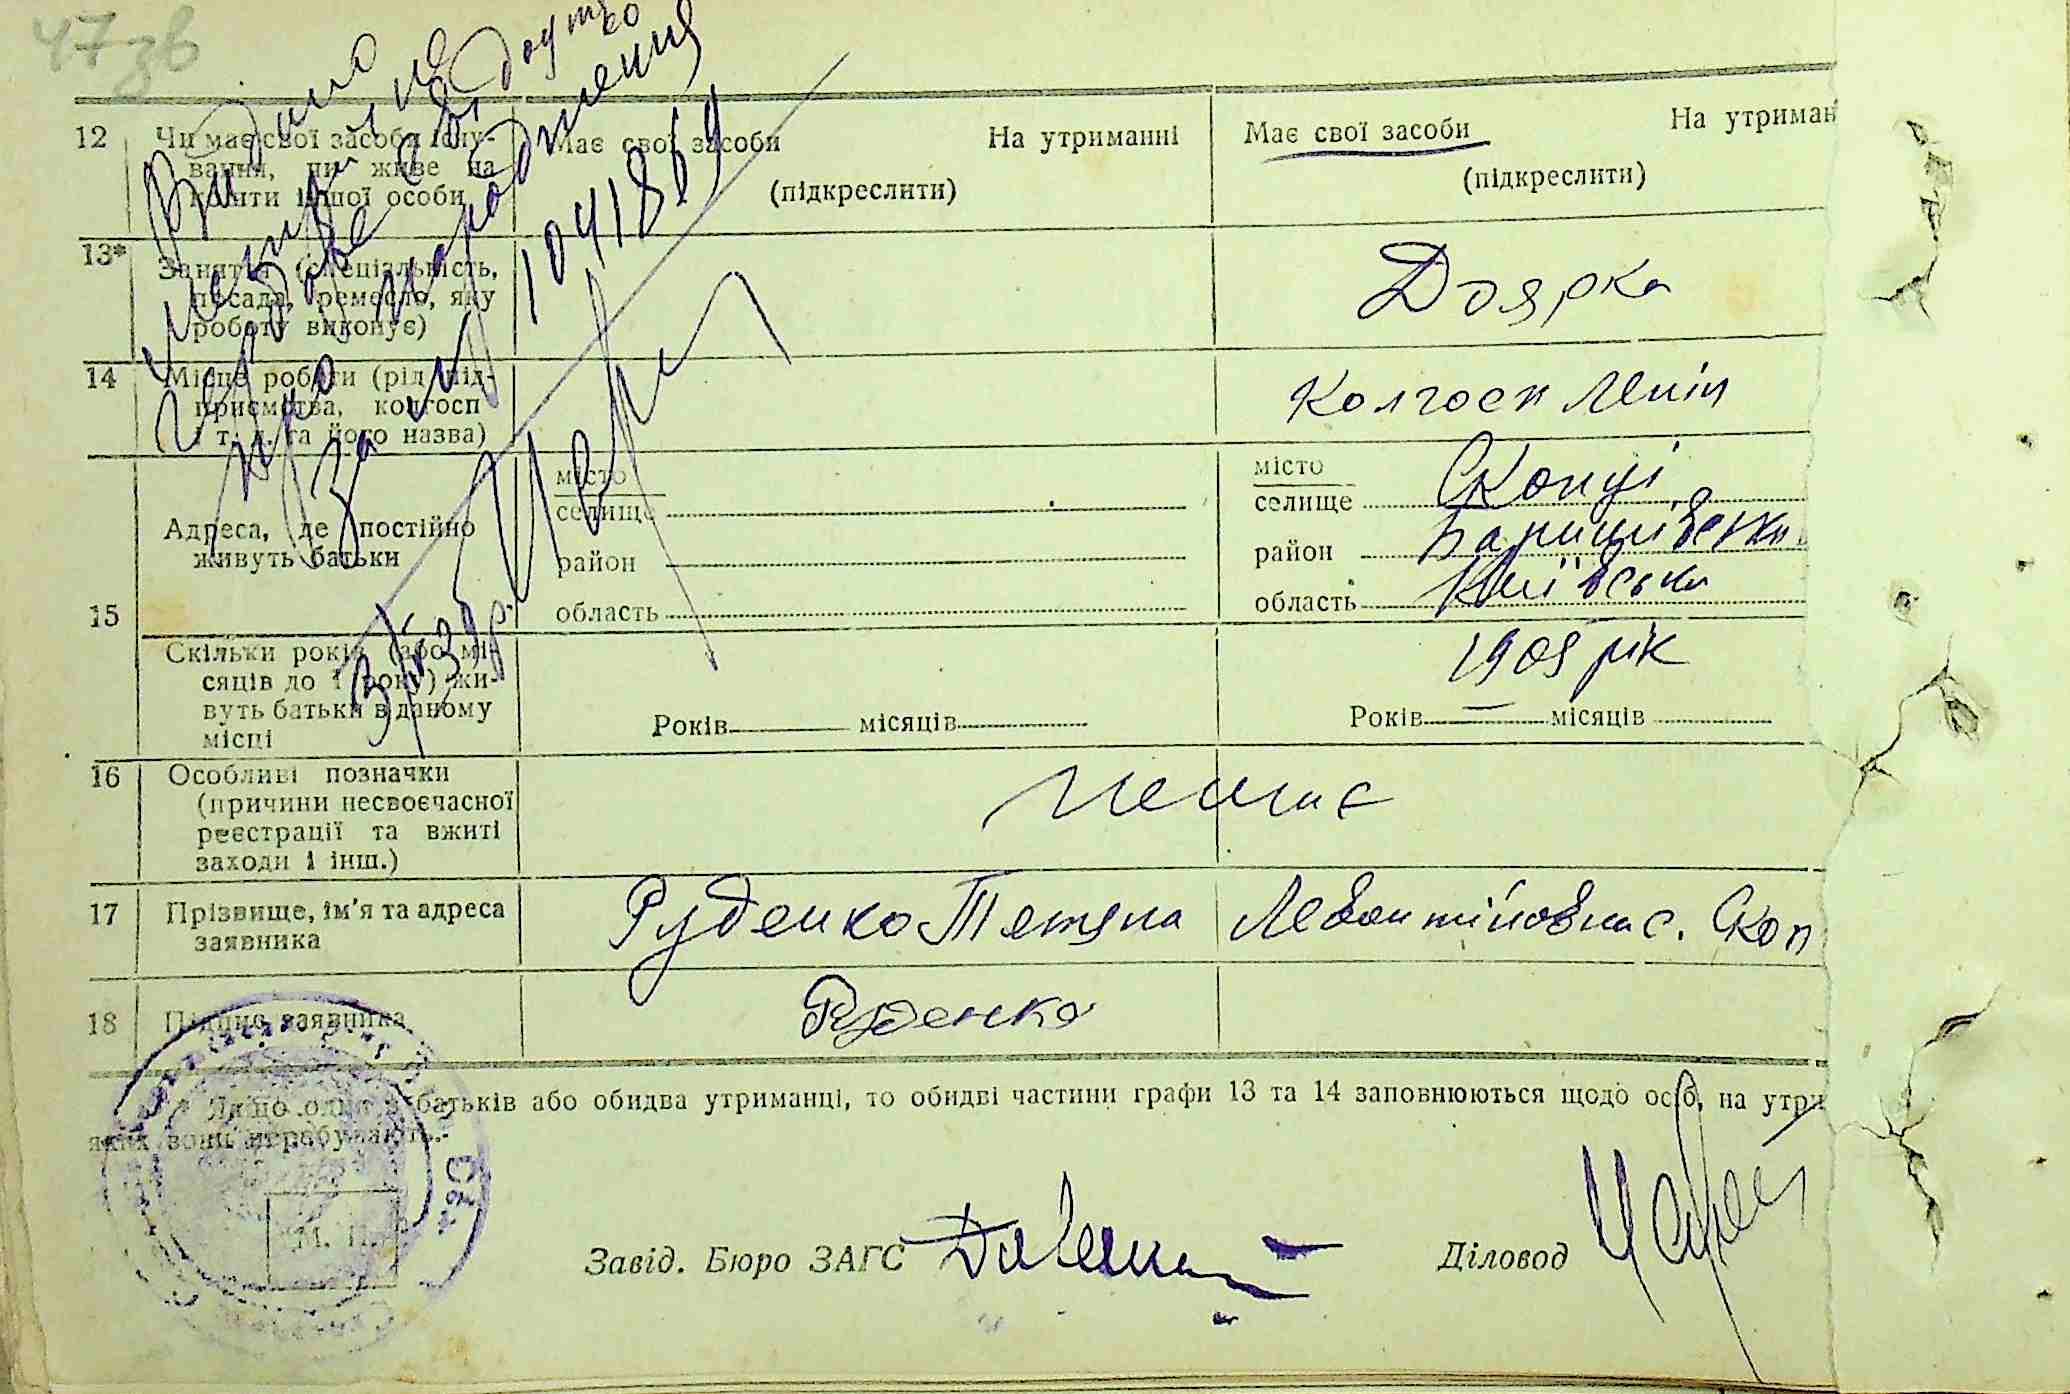 47зв
12 Чи має свої засоби існу-
вання, чи живе на
кошти іншої особи
Має свої засоби На утриманні
(підкреслити)
Має свої засоби На утриман
(підкреслити)
13* Заняття (спеціальність,
посада, ремесло, яку
роботу виконує)
Доярка
14 Місце роботи (рід під-
приємства, колгосп
і т. д. та його назва)
Колгосп Ленін
15 Адреса, де постійно
живуть батьки
місто
селище
район
область
місто
селище Скопці
район Баришівськи
область Київська
Скільки років (або мі-
сяців до 1 року) жи-
вуть батьки в даному
місці
Років місяців
1909 рік
Років — місяців
16 Особливі позначки
(причини несвоєчасної
реєстрації та вжиті
заходи і інш.)
немає
17 Прізвище, ім'я та адреса
заявника
Руденко Тетяна Левонтіївна с. Скоп
18 Підпис заявника
Руденко
* Якщо один з батьків або обидва утриманці, то обидві частини графи 13 та 14 заповнюються щодо осіб, на утри
яких вони перебувають.
М. П.
Завід. Бюро ЗАГС
Діловод
Видано
свід
про народження
за № 1041869